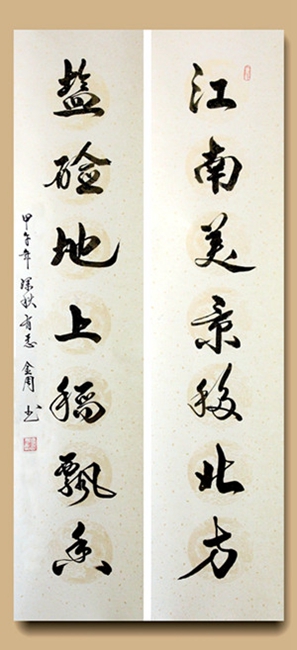 江南美景移北方
盐硷地上稻飘香
甲午年深秋有志金周书